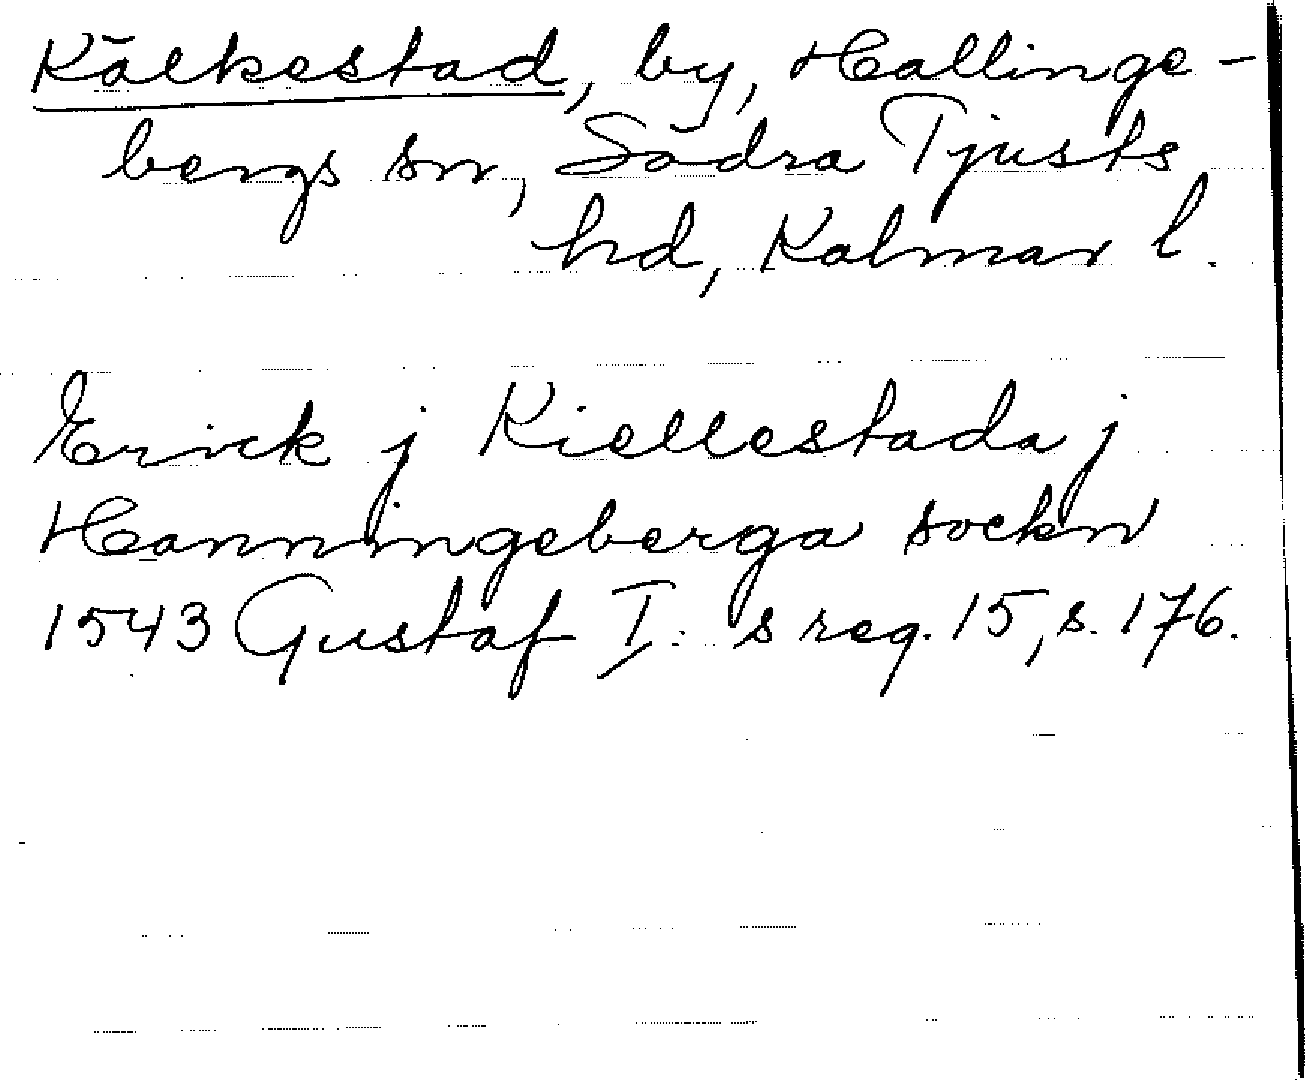 Kälkestad, by, Hallinge-
bergs sn, Södra Tjusts
hd, Kalmar l.
Erick j Kiellestada j
Hanningeberga sockn
1543 Gustaf I:s reg. 15, s. 176.